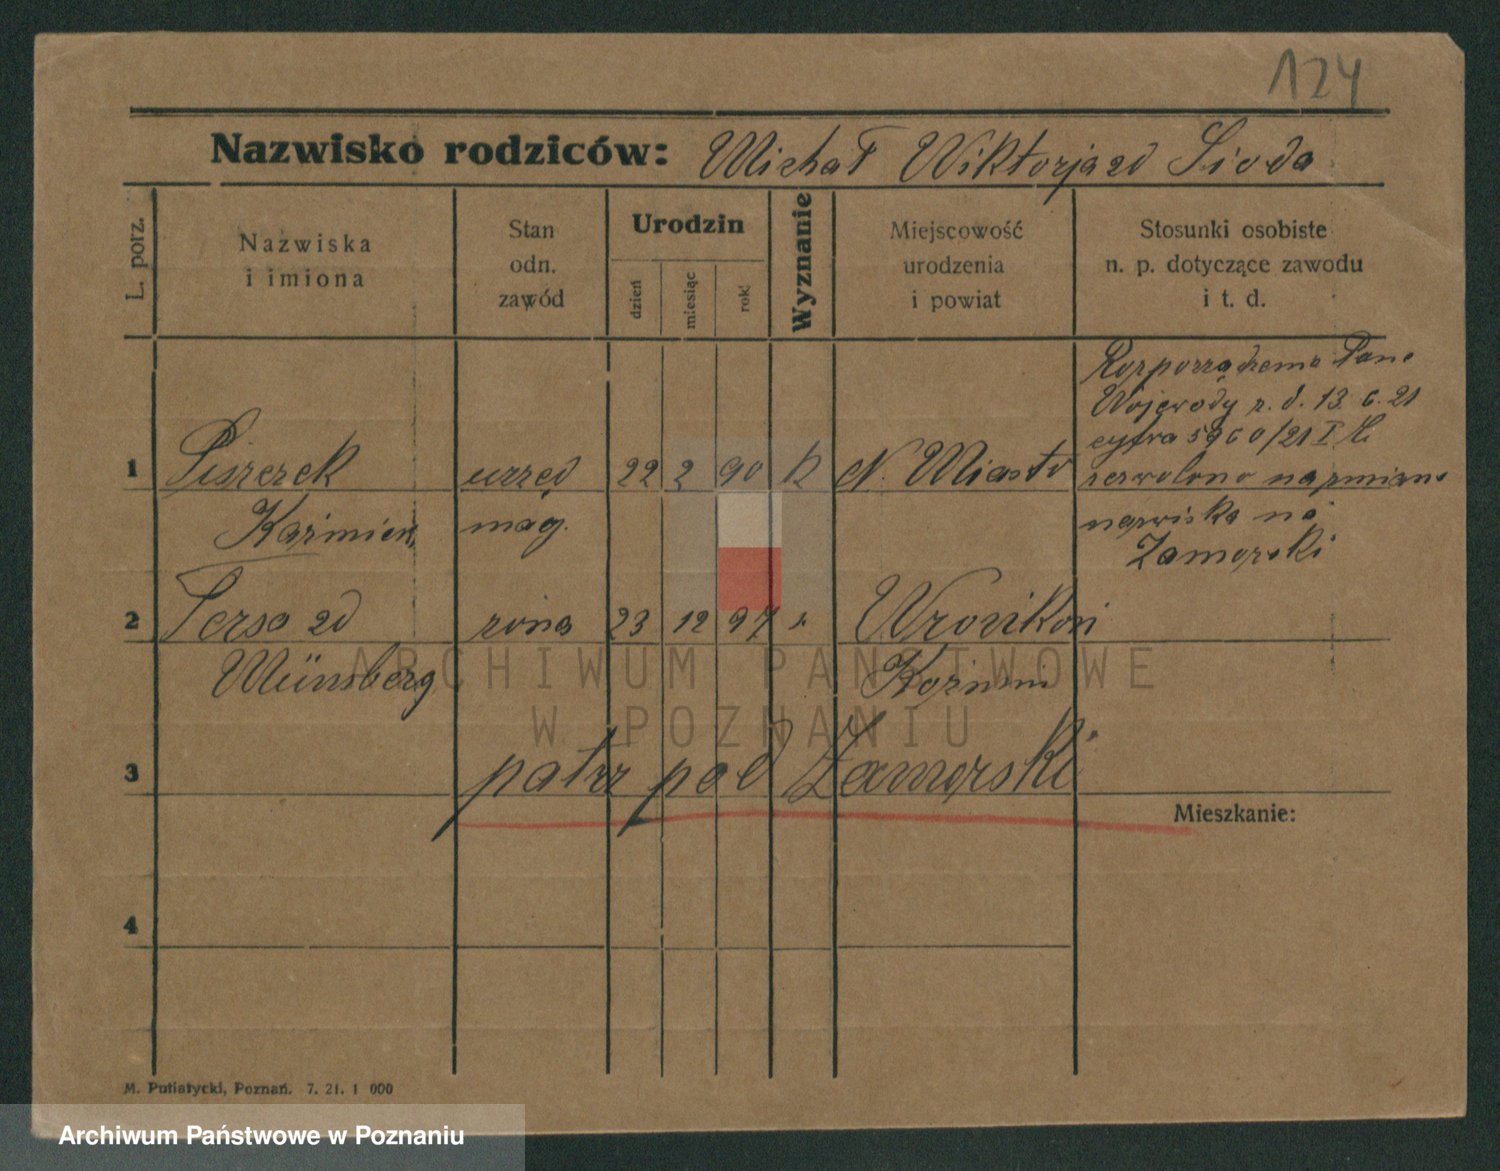 124
Nazwisko rodziców: Michał Wiktorja zd Sioda
L. porz.
Nazwiska
i imiona
Stan
odn.
zawód
Urodzin
dzień
miesiąc
rok
Wyznanie
Miejscowość
urodzenia
i powiat
Stosunki osobiste
n. p. dotyczące zawodu
i t. d.
Rozporządzenia Pana
Wojewody z. d. 13. 6. 21
cyfra 5960/21 I
zezwolono na zmianę
nazwiska na
Zamorski
1 Piszczek urzęd 22 2 90 k N. Miasto
Kazimierz mag.
2 Tersa zd żona 23 12 97
Münsberg
3 patrz pod Zamorski
Mieszkanie:
4
M. Putiatycki, Poznań. 7. 21. 1 000
ARCHIWUM PAŃSTWOWE
W POZNANIU
Archiwum Państwowe w Poznaniu